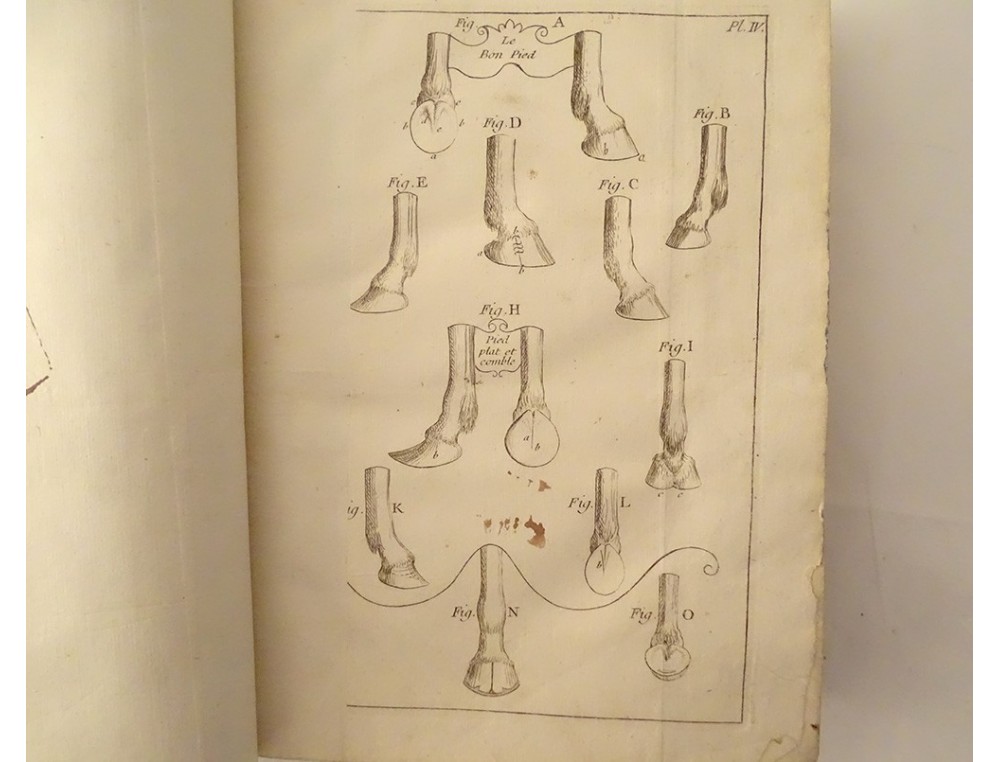 Pl. IV.
Fig. A
Le
Bon Pied
c c
b d e b
a
b a
Fig. B
Fig. D
a
b
Fig. E
Fig. C
Fig. H
Pied
plat et
comble
b
a b
Fig. I
c c
ig. K
Fig. L
b
Fig. N
Fig. O